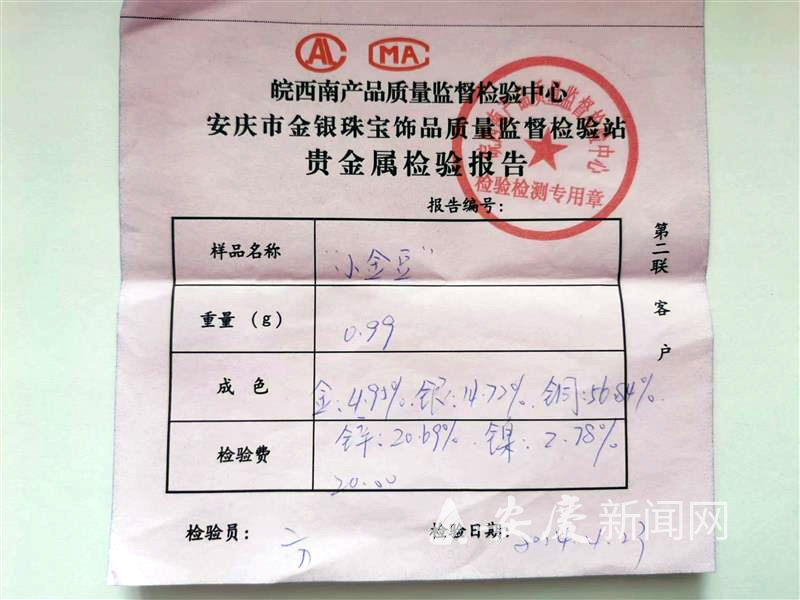 CAL CMA
皖西南产品质量监督检验中心
安庆市金银珠宝饰品质量监督检验站
贵金属检验报告
皖西南产品质量监督检验中心
检验检测专用章
报告编号：
第二联 客户
样品名称 “小金豆”
重量（g） 0.99
成色 金:4.95% 银:14.72% 铜:56.84%.
锌:20.69% 镍:2.78%
检验费 20.00
检验员：
检验日期：
安庆新闻网